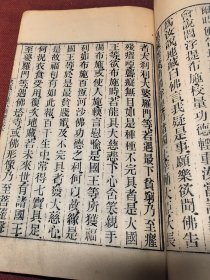 閻浮提布施校量功德輕重汝當諦
地藏白佛言我疑是事願樂欲聞佛告
者大剎利大婆羅門等若遇最下貧窮乃至癃
殘瘖瘂聾癡無目如是種種不完具者是大國
王等欲布施時若能具大慈悲下心含笑親手
遍布施或使人施軟言慰喻是國王等所獲福
利如布施百恒河沙佛功德之利何以故緣是
國王等於是最貧賤輩及不完具者發大慈心
是故福利有如此報百千生中常得七寶具足
何況衣食受用復次地藏若未來世有諸國王
至婆羅門等遇佛塔寺或佛形像乃至菩薩